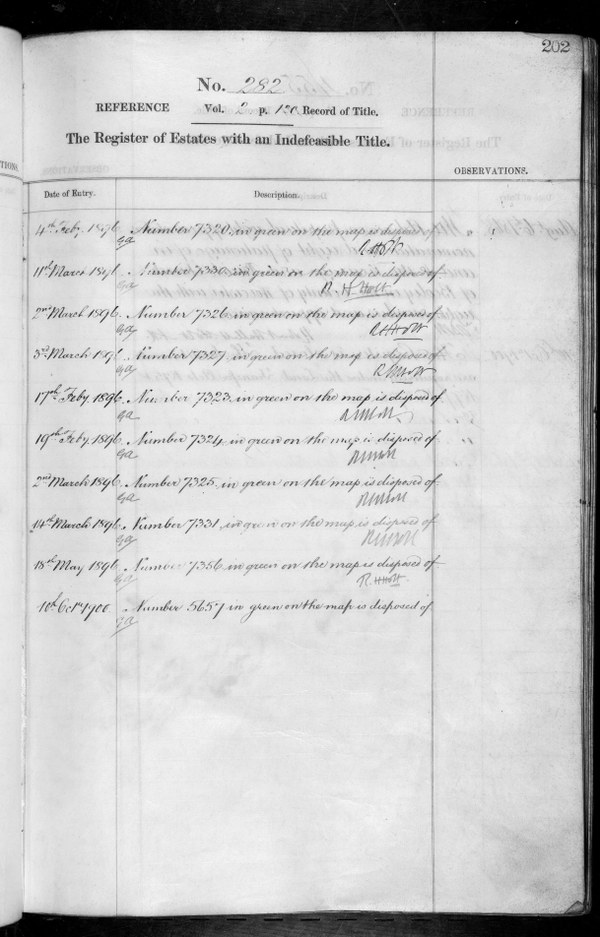 202
No. 282
REFERENCE Vol. 2 p. 130 Record of Title.
The Register of Estates with an Indefeasible Title.
OBSERVATIONS.
Date of Entry. Description
4th Feby 1896 Number 7320, in green on the map is disposed of
11th March 1896 Number 7330, in green on the map is disposed of
R. H. Holt
2nd March 1896 Number 7326 in green on the map is disposed of
3rd March 1896 Number 7327 in green on the map is disposed of
17th Feby 1896 Number 7323, in green on the map is disposed of
19th Feby 1896 Number 7324, in green on the map is disposed of
2nd March 1896 Number 7325, in green on the map is disposed of
14th March 1896 Number 7331, in green on the map is disposed of
18th May 1896 Number 7356, in green on the map is disposed of
10th Octr 1900 Number 5657 in green on the map is disposed of